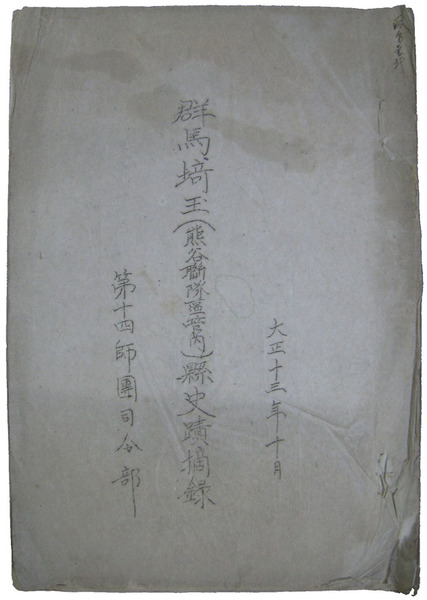 大正十三年十月
群馬埼玉(熊谷聯隊區管内)縣史蹟摘録
第十四師團司令部